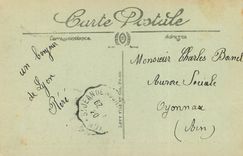 Carte Postale
Correspondance
Adresse
un bonjour
de Lyon
Réré
Monsieur Charles Banel
Aurore Sociale
Oyonnax
(Ain)